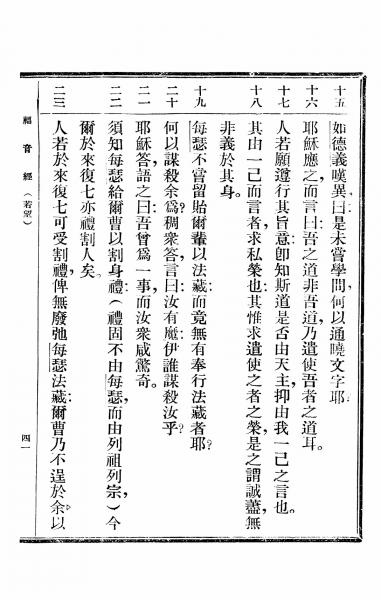 十五 如德義嘆異曰是未嘗學問何以通曉文字耶
十六 耶穌應之而言曰吾之道非吾道乃遣使吾者之道耳。
十七 人若願遵行其旨意卽知斯道是否由天主，抑由我一己之言也。
十八 其由一己而言者，求私榮也其惟求遣使之者之榮，是之謂誠藎無
非義於其身。
十九 每瑟不嘗留貽爾輩以法藏而竟無有奉行法藏者耶？
二十 何以謀殺余爲稠衆答言曰汝有魔伊誰謀殺汝乎？
二一 耶穌答語之曰吾曾爲一事，而汝衆咸驚奇。
二二 須知每瑟給爾曹以割身禮（禮固不由每瑟，而由列祖列宗）今
爾於來復七亦禮割人矣。
二三 人若於來復七可受割禮，俾無廢弛每瑟法藏爾曹乃不逞於余以
福音經（若望）
四一